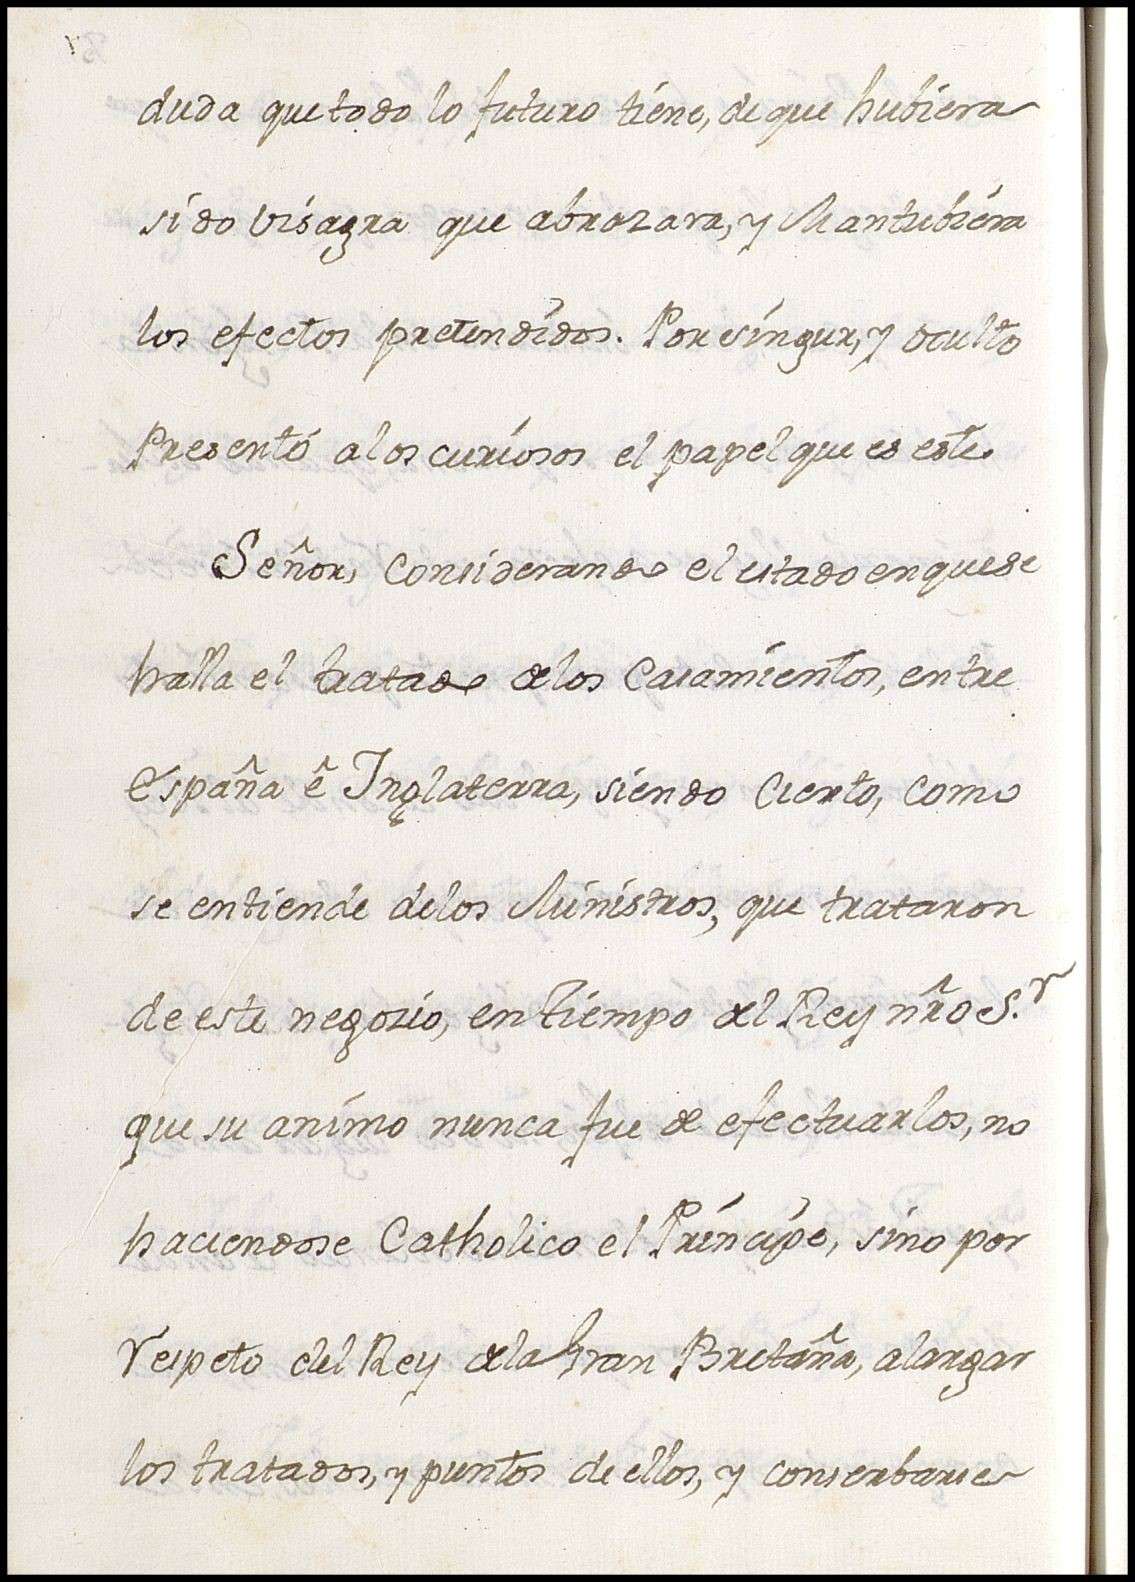 duda que todo lo futuro tiene, de que hubiera
sido visagra que abrazara, y Mantubiera
los efectos pretendidos. Por singur, y oculto
Presentó a los curiosos el papel que es este.
Señor, Considerando el estado en que se
halla el tratado de los Casamientos, entre
España ê Inglaterra, siendo Cierto, como
se entiende de los Ministros, que trataron
de este negozio, en Tiempo del Rey nr̃o S.r
que su animo nunca fue de efectuarlos, no
haciendose Catholico el Príncipe, sino por
respeto del Rey de la Gran Bretaña, alargar
los tratados, y puntos de ellos, y conserbarse